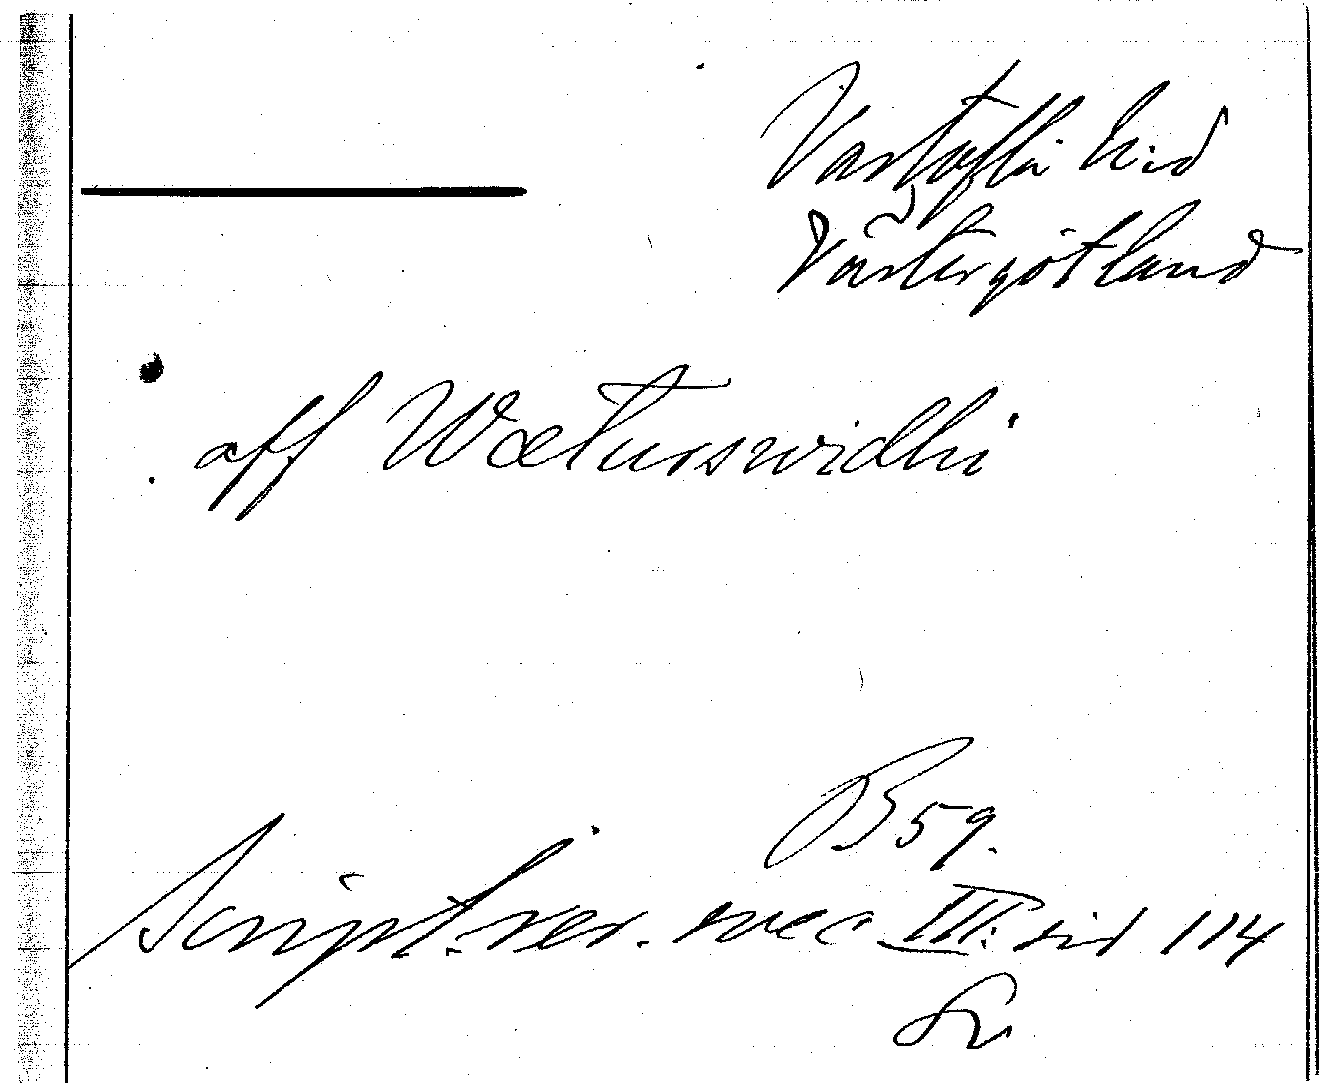 Vartofta hd
Västergötland
aff Wæturswidhi
B 59.
Script. rer. svec III: sid 114